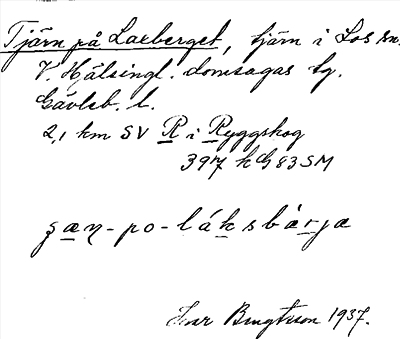 Tjärn på Laxberget, tjärn i Los sn.
V. Hälsingl. domsagas tg.
Gävleb. l.
2,1 km SV R i Ryggskog
397 k G 83 SM
ʒæn-po-láksbärja
Ivar Bengtsson 1937.